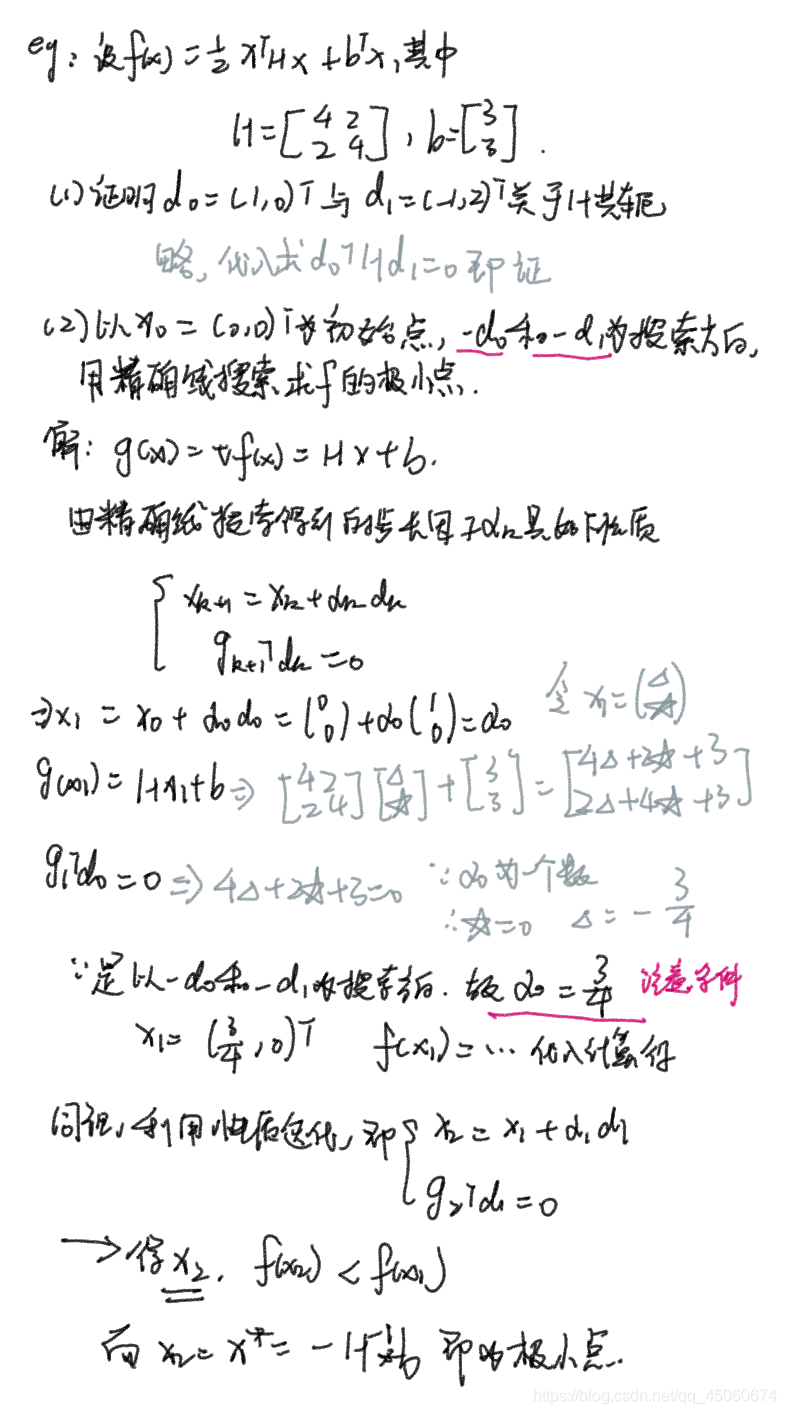 eg: 设f(x) = 1/2 xᵀHx + bᵀx, 其中
H = [4 2; 2 4], b = [3; 3].
(1) 证明 d₀ = (1,0)ᵀ 与 d₁ = (-1,2)ᵀ 关于H共轭
略, 代入式 d₀ᵀHd₁=0 即证
(2) 以 x₀ = (0,0)ᵀ 为初始点, -d₀和-d₁为搜索方向,
用精确线搜索求f的极小点.
解: g(x) = ∇f(x) = Hx+b.
由精确线搜索得到的步长因子αₖ具如下性质
{ xₖ₊₁ = xₖ + αₖdₖ
gₖ₊₁ᵀdₖ = 0
令 x₁ = (△; ☆)
⇒ x₁ = x₀ + α₀d₀ = (0; 0) + α₀(1; 0) = α₀
g(x₁) = Hx₁+b ⇒ [4 2; 2 4][△; ☆] + [3; 3] = [4△+2☆+3; 2△+4☆+3]
g₁ᵀd₀ = 0 ⇒ 4△+2☆+3=0 ∵ α₀为一个数
∴ ☆=0 △ = -3/4
∵ 是以-d₀和-d₁为搜索方向. 故 α₀ = 3/4 注意条件
x₁ = (3/4, 0)ᵀ f(x₁) = … 代入计算得
同理, 利用性质迭代, 即 { x₂ = x₁ + α₁d₁
g₂ᵀd₁ = 0
→ 得x₂. f(x₂) < f(x₁)
而 x₂ = x* = -H⁻¹b 即为极小点.
https://blog.csdn.net/qq_45060674